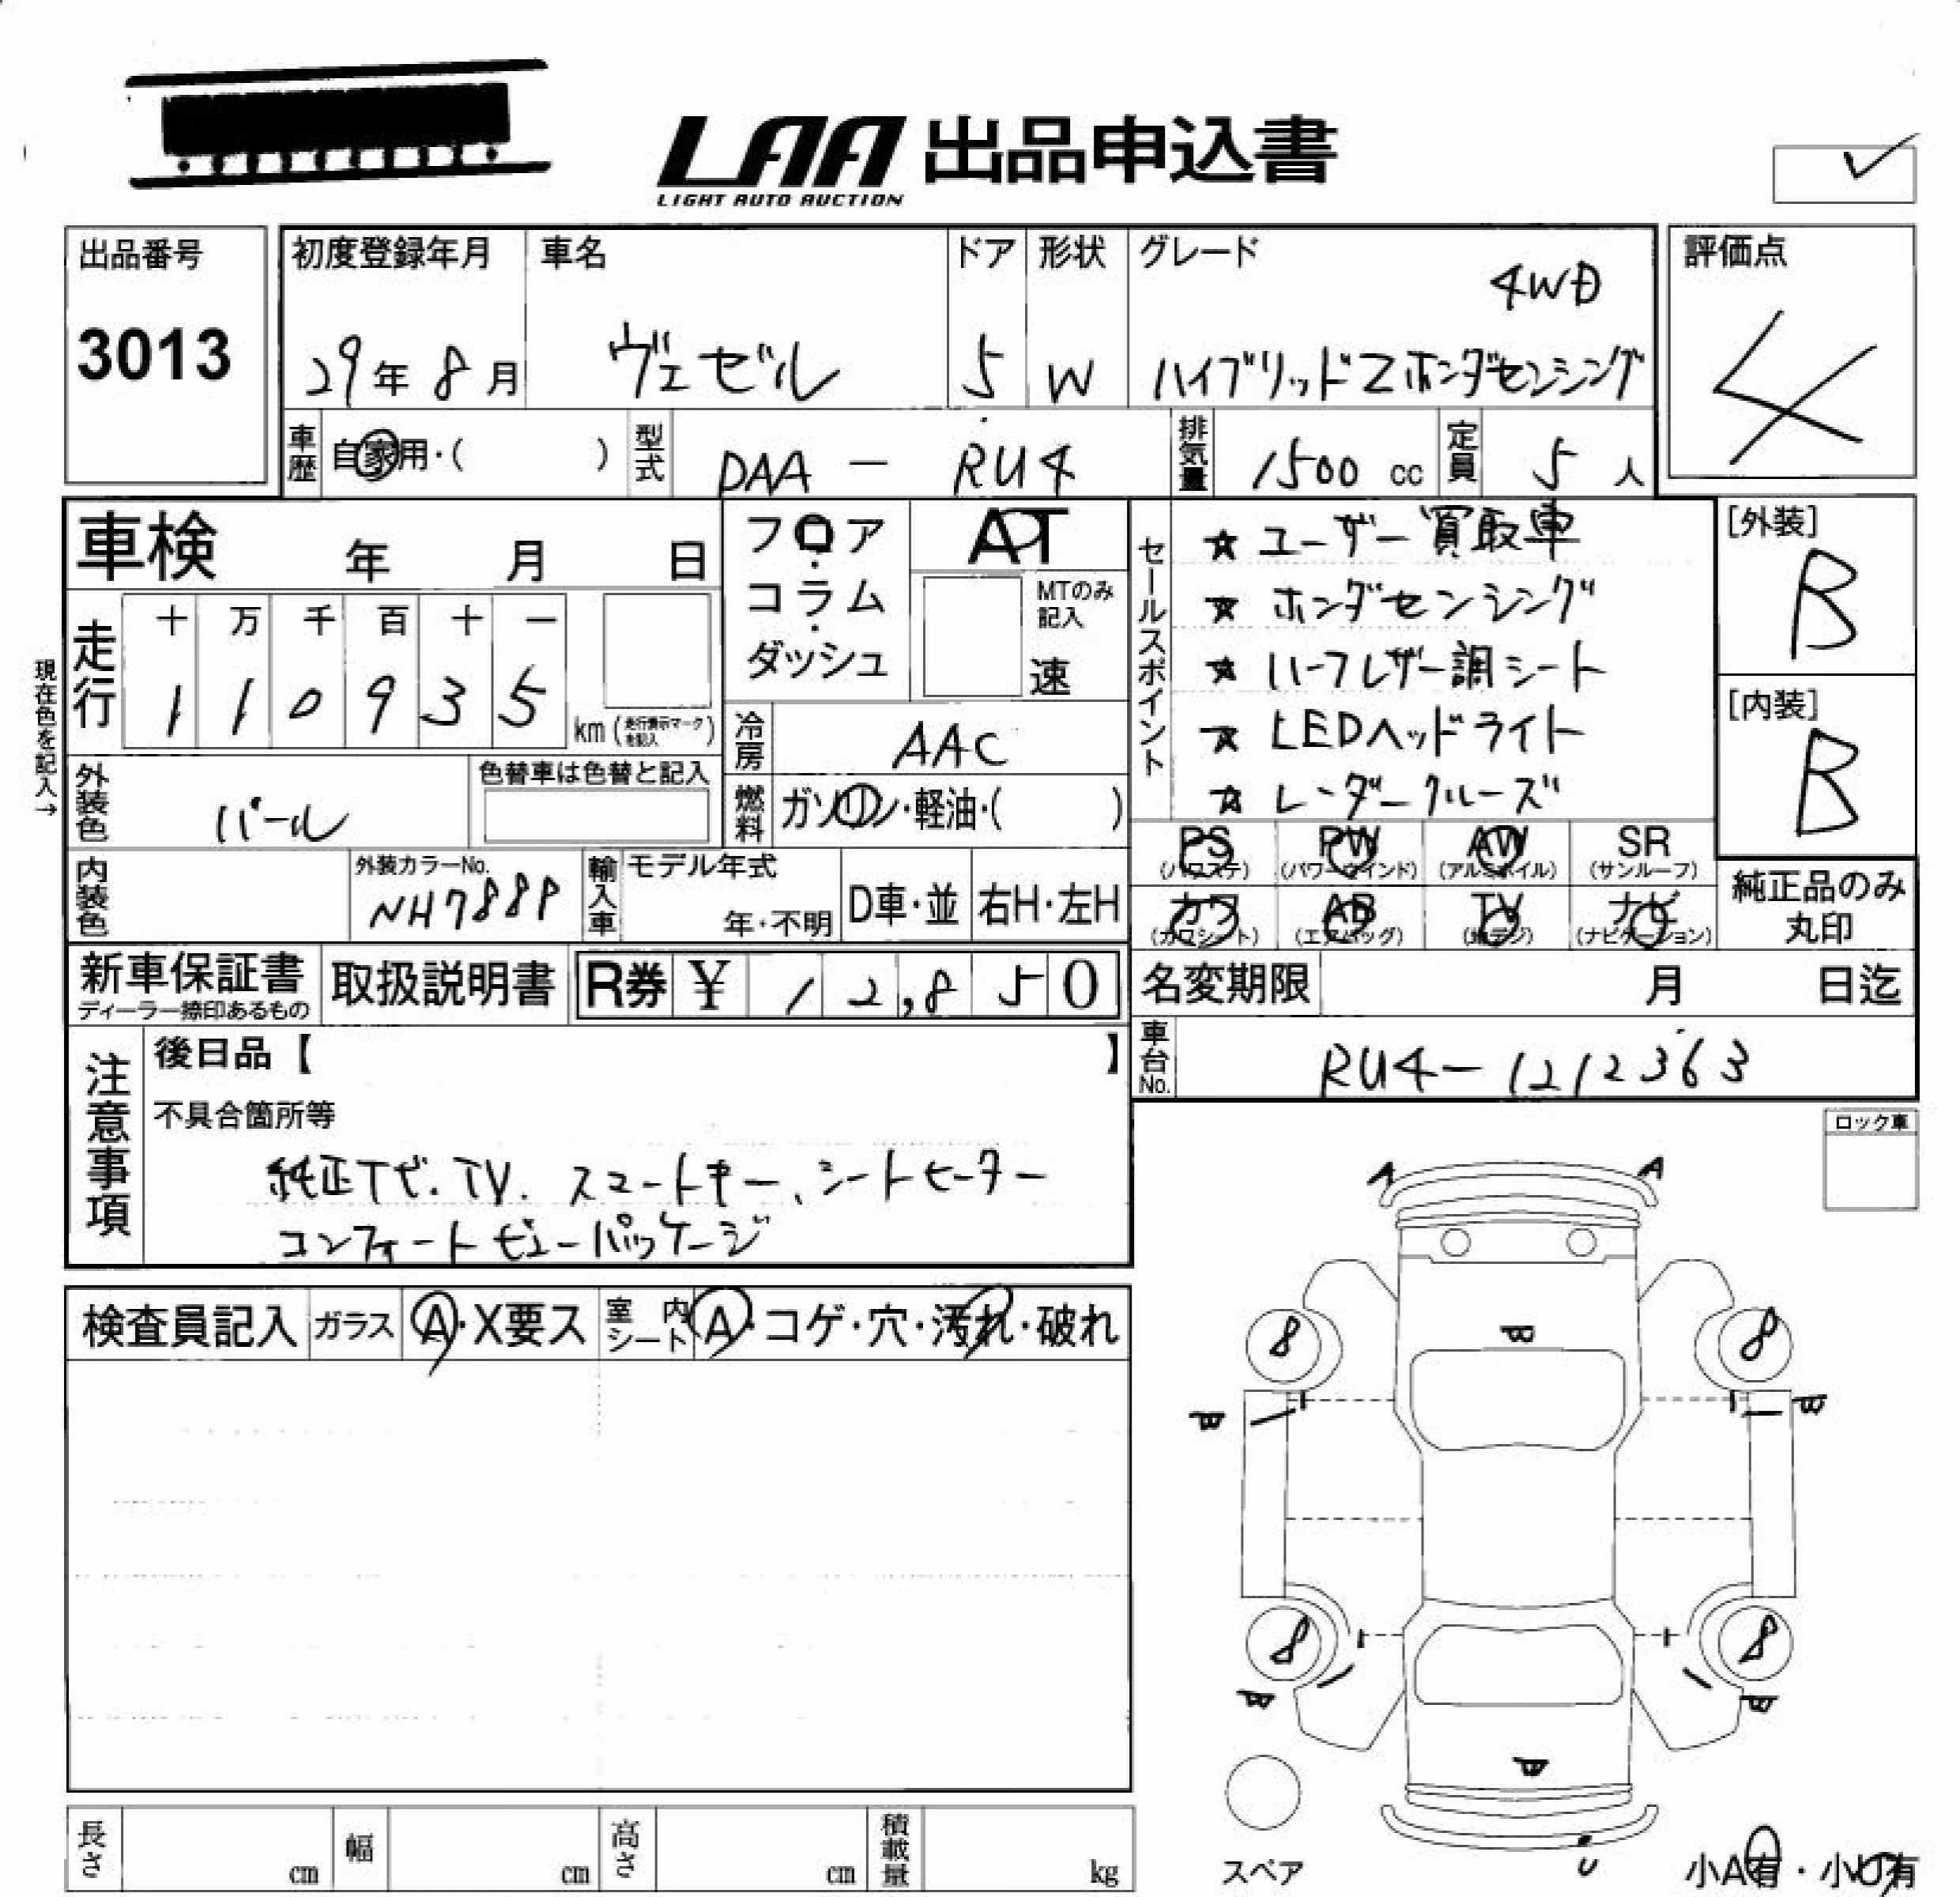 LAA 出品申込書
LIGHT AUTO AUCTION
出品番号
3013
初度登録年月
29年 8月
車名
ヴェゼル
ドア
5
形状
W
グレード
4WD
ハイブリッドZホンダセンシング
評価点
4
車歴 自家用・( )
型式 DAA - RU4
排気量 1500 cc
定員 5 人
車検 年 月 日
フロア・コラム・ダッシュ
AT
MTのみ記入
速
セールスポイント
☆ ユーザー買取車
☆ ホンダセンシング
☆ ハーフレザー調シート
☆ LEDヘッドライト
☆ レーダークルーズ
[外装]
B
[内装]
B
現在色を記入→
走行
十 万 千 百 十 一
1 1 0 9 3 5
km (走行表示マークを記入)
冷房 AAC
外装色 パール
色替車は色替と記入
燃料 ガソリン・軽油・( )
内装色
外装カラーNo.
NH788P
輸入車
モデル年式
年・不明
D車・並
右H・左H
PS (パワステ)
PW (パワーウインド)
AW (アルミホイル)
SR (サンルーフ)
カワ (カワシート)
AB (エアバッグ)
TV (地デジ)
ナビ (ナビゲーション)
純正品のみ丸印
新車保証書
ディーラー捺印あるもの
取扱説明書
R券 ¥ 12,850
名変期限 月 日迄
車台No. RU4-1212363
注意事項
後日品【 】
不具合箇所等
純正ナビ.TV. スマートキー、シートヒーター
コンフォートビューパッケージ
ロック車
検査員記入
ガラス A・X要ス
室内シート A・コゲ・穴・汚れ・破れ
A A
B
8 8
B B
8 8
B B
B
U
スペア
小A有・小U有
長さ cm
幅 cm
高さ cm
積載量 kg